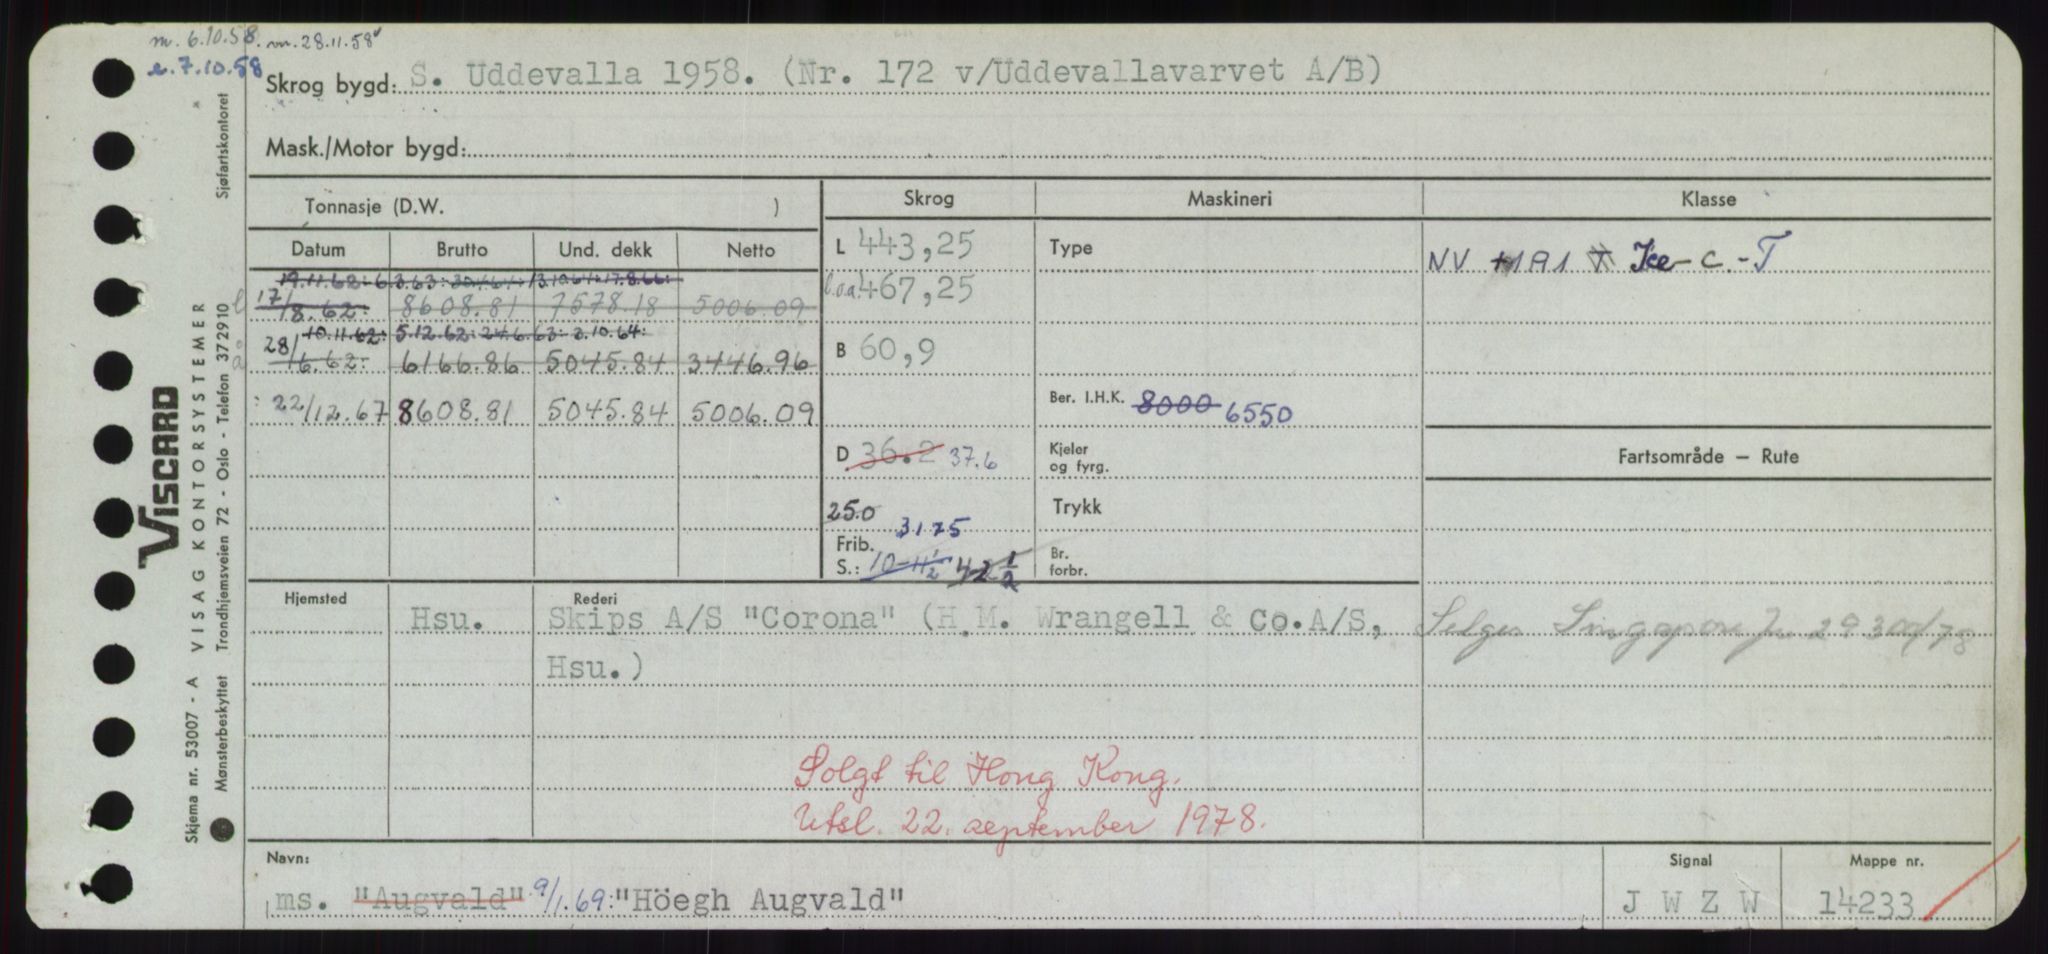 m. 6.10.58. m. 28.11.58
e. 7.10.58
Skrog bygd: S. Uddevalla 1958. (Nr. 172 v/Uddevallavarvet A/B)
Mask./Motor bygd:
Tonnasje (D.W. )
Skrog Maskineri Klasse
Datum Brutto Und. dekk Netto
L 443,25 Type NV +1A1 Ice-C.-T
19.11.62: 6.3.63: 13.10.64: 17.8.66:
l 17/8.62: 8608.81 7578.18 5006.09
l.o.a. 467,25
10.11.62: 5.12.62: 24.6.63: 2.10.64:
å 28/6.62: 6166.86 5045.84 3446.96
B 60,9
: 22/12.67 8608.81 5045.84 5006.09
Ber. I.H.K. 8000 6550
D 36.2 37.6
Kjeler
og fyrg.
Fartsområde — Rute
25.0 31.75
Trykk
Frib.
S.: 10-11½ 42½
Br.
forbr.
Hjemsted Rederi
Hsu. Skips A/S "Corona" (H.M. Wrangell & Co.A/S,
Hsu.)
Selges Singapore 29300/78
Solgt til Hong Kong.
Utsl. 22. september 1978.
Navn: Signal Mappe nr.
ms. "Augvald" 9/1.69: "Höegh Augvald" J W Z W 14233
VISCARD
Skjema nr. 53007 - A VISAG KONTORSYSTEMER
Mønsterbeskyttet Trondhjemsveien 72 - Oslo - Telefon 37 29 10
Sjøfartskontoret